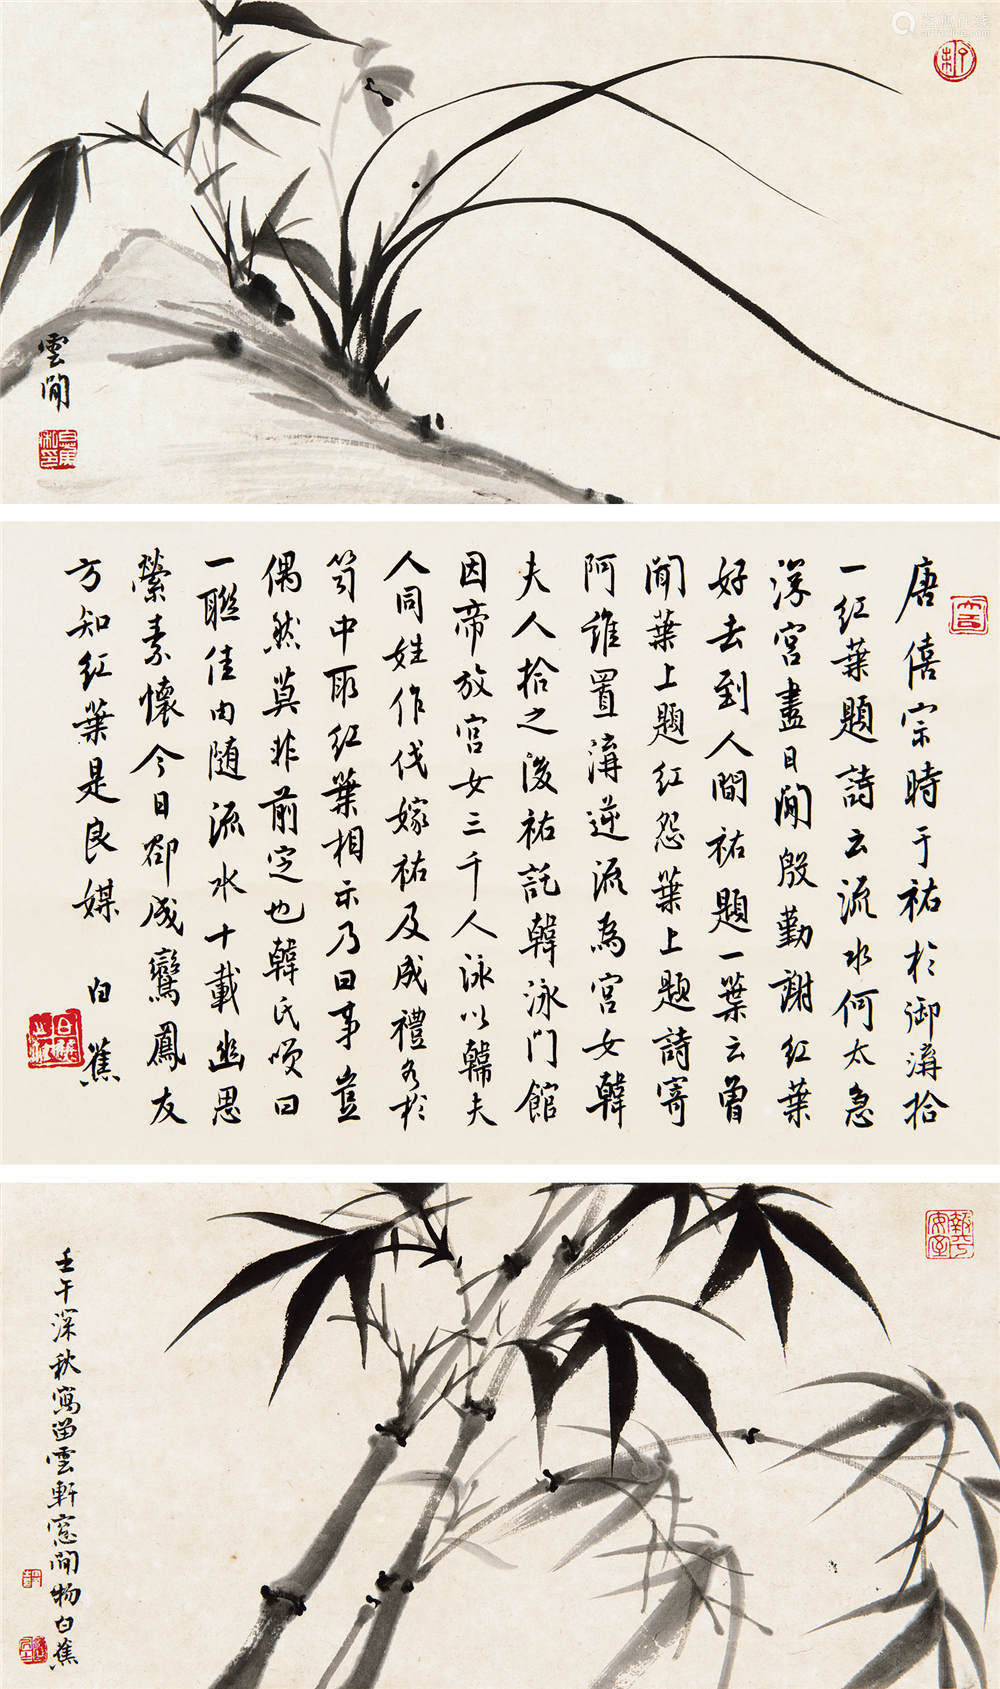 雲間
唐僖宗時于祐於御溝拾
一紅葉題詩云流水何太急
深宮盡日閒殷勤謝紅葉
好去到人間祐題一葉云曾
聞葉上題紅怨葉上題詩寄
阿誰置溝逆流為宮女韓
夫人拾之後祐託韓泳門館
因帝放宮女三千人泳以韓夫
人同姓作伐嫁祐及成禮各於
笥中取紅葉相示乃曰事豈
偶然莫非前定也韓氏笑曰
一聯佳句随流水十載幽思
縈素懷今日卻成鸞鳳友
方知紅葉是良媒
白蕉
壬午深秋寫留雲軒窓間物白蕉